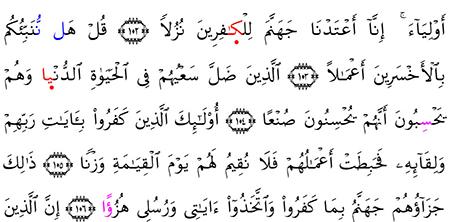 أَوْلِيَآءَ ۚ إِنَّآ أَعْتَدْنَا جَهَنَّمَ لِلْكَٰفِرِينَ نُزُلًا ﴿١٠٢﴾ قُلْ هَل نُّنَبِّئُكُم
بِٱلْأَخْسَرِينَ أَعْمَٰلًا ﴿١٠٣﴾ ٱلَّذِينَ ضَلَّ سَعْيُهُمْ فِى ٱلْحَيَوٰةِ ٱلدُّنْيَا وَهُمْ
يَحْسِبُونَ أَنَّهُمْ يُحْسِنُونَ صُنْعًا ﴿١٠٤﴾ أُوْلَٰٓئِكَ ٱلَّذِينَ كَفَرُواْ بِـَٔايَٰتِ رَبِّهِمْ
وَلِقَآئِهِۦ فَحَبِطَتْ أَعْمَٰلُهُمْ فَلَا نُقِيمُ لَهُمْ يَوْمَ ٱلْقِيَٰمَةِ وَزْنًا ﴿١٠٥﴾ ذَٰلِكَ
جَزَآؤُهُمْ جَهَنَّمُ بِمَا كَفَرُواْ وَٱتَّخَذُوٓاْ ءَايَٰتِى وَرُسُلِى هُزُؤًا ﴿١٠٦﴾ إِنَّ ٱلَّذِينَ